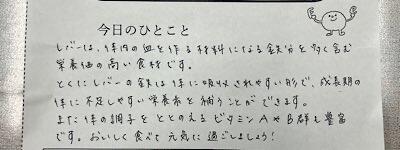 今日のひとこと
レバーは、体内の血を作る材料になる鉄分を多く含む
栄養価の高い食材です。
とくにレバーの鉄は体に吸収されやすい形で、成長期の
体に不足しやすい栄養素を補うことができます。
また体の調子をととのえるビタミンAやB群も豊富
です。おいしく食べて元気に過ごしましょう！